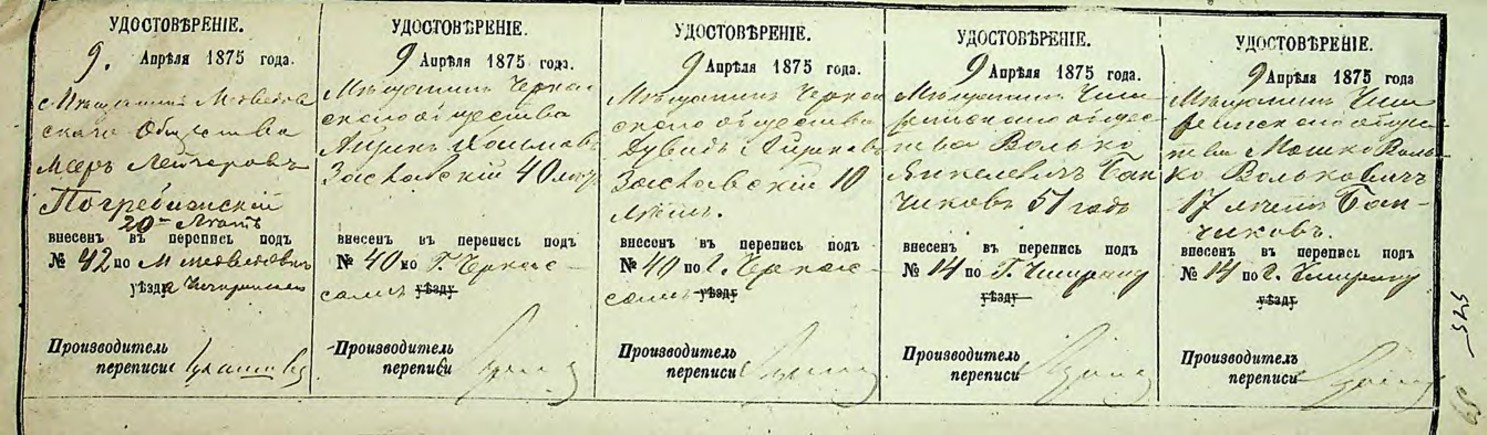 УДОСТОВѢРЕНІЕ.
9. Апрѣля 1875 года.
Мѣщанинъ Медведов
скаго Общества
Меръ Лейзеровъ
Погребижскій
20 лѣтъ
внесенъ въ перепись подъ
№ 42 по М Медведовкѣ
уѣзда Чигиринскаго
Производитель
переписи
УДОСТОВѢРЕНІЕ.
9 Апрѣля 1875 года.
Мѣщанинъ Черкас
скаго общества
Заславскій 40 лѣтъ
внесенъ въ перепись подъ
№ 40 по Г. Черкас-
самъ уѣзду
Производитель
переписи
УДОСТОВѢРЕНІЕ.
9 Апрѣля 1875 года.
Мѣщанинъ Черкас
скаго общества
Дувидъ Айзиковъ
Заславскій 10
лѣтъ.
внесенъ въ перепись подъ
№ 40 по г. Черкас-
самъ уѣзду
Производитель
переписи
УДОСТОВѢРЕНІЕ.
9 Апрѣля 1875 года.
Мѣщанинъ Чиги
ринскаго общес
тва Волько
Янкелевичъ Бан
чиковъ 51 годъ
внесенъ въ перепись подъ
№ 14 по Г. Чигирину
уѣзду
Производитель
переписи
УДОСТОВѢРЕНІЕ.
9 Апрѣля 1875 года
Мѣщанинъ Чиги
ринскаго общес-
тва Мошко Воль-
ко Вольковичъ
17 лѣтъ Бан-
чиковъ.
внесенъ въ перепись подъ
№ 14 по г. Чигирину
уѣзду
Производитель
переписи
525
59